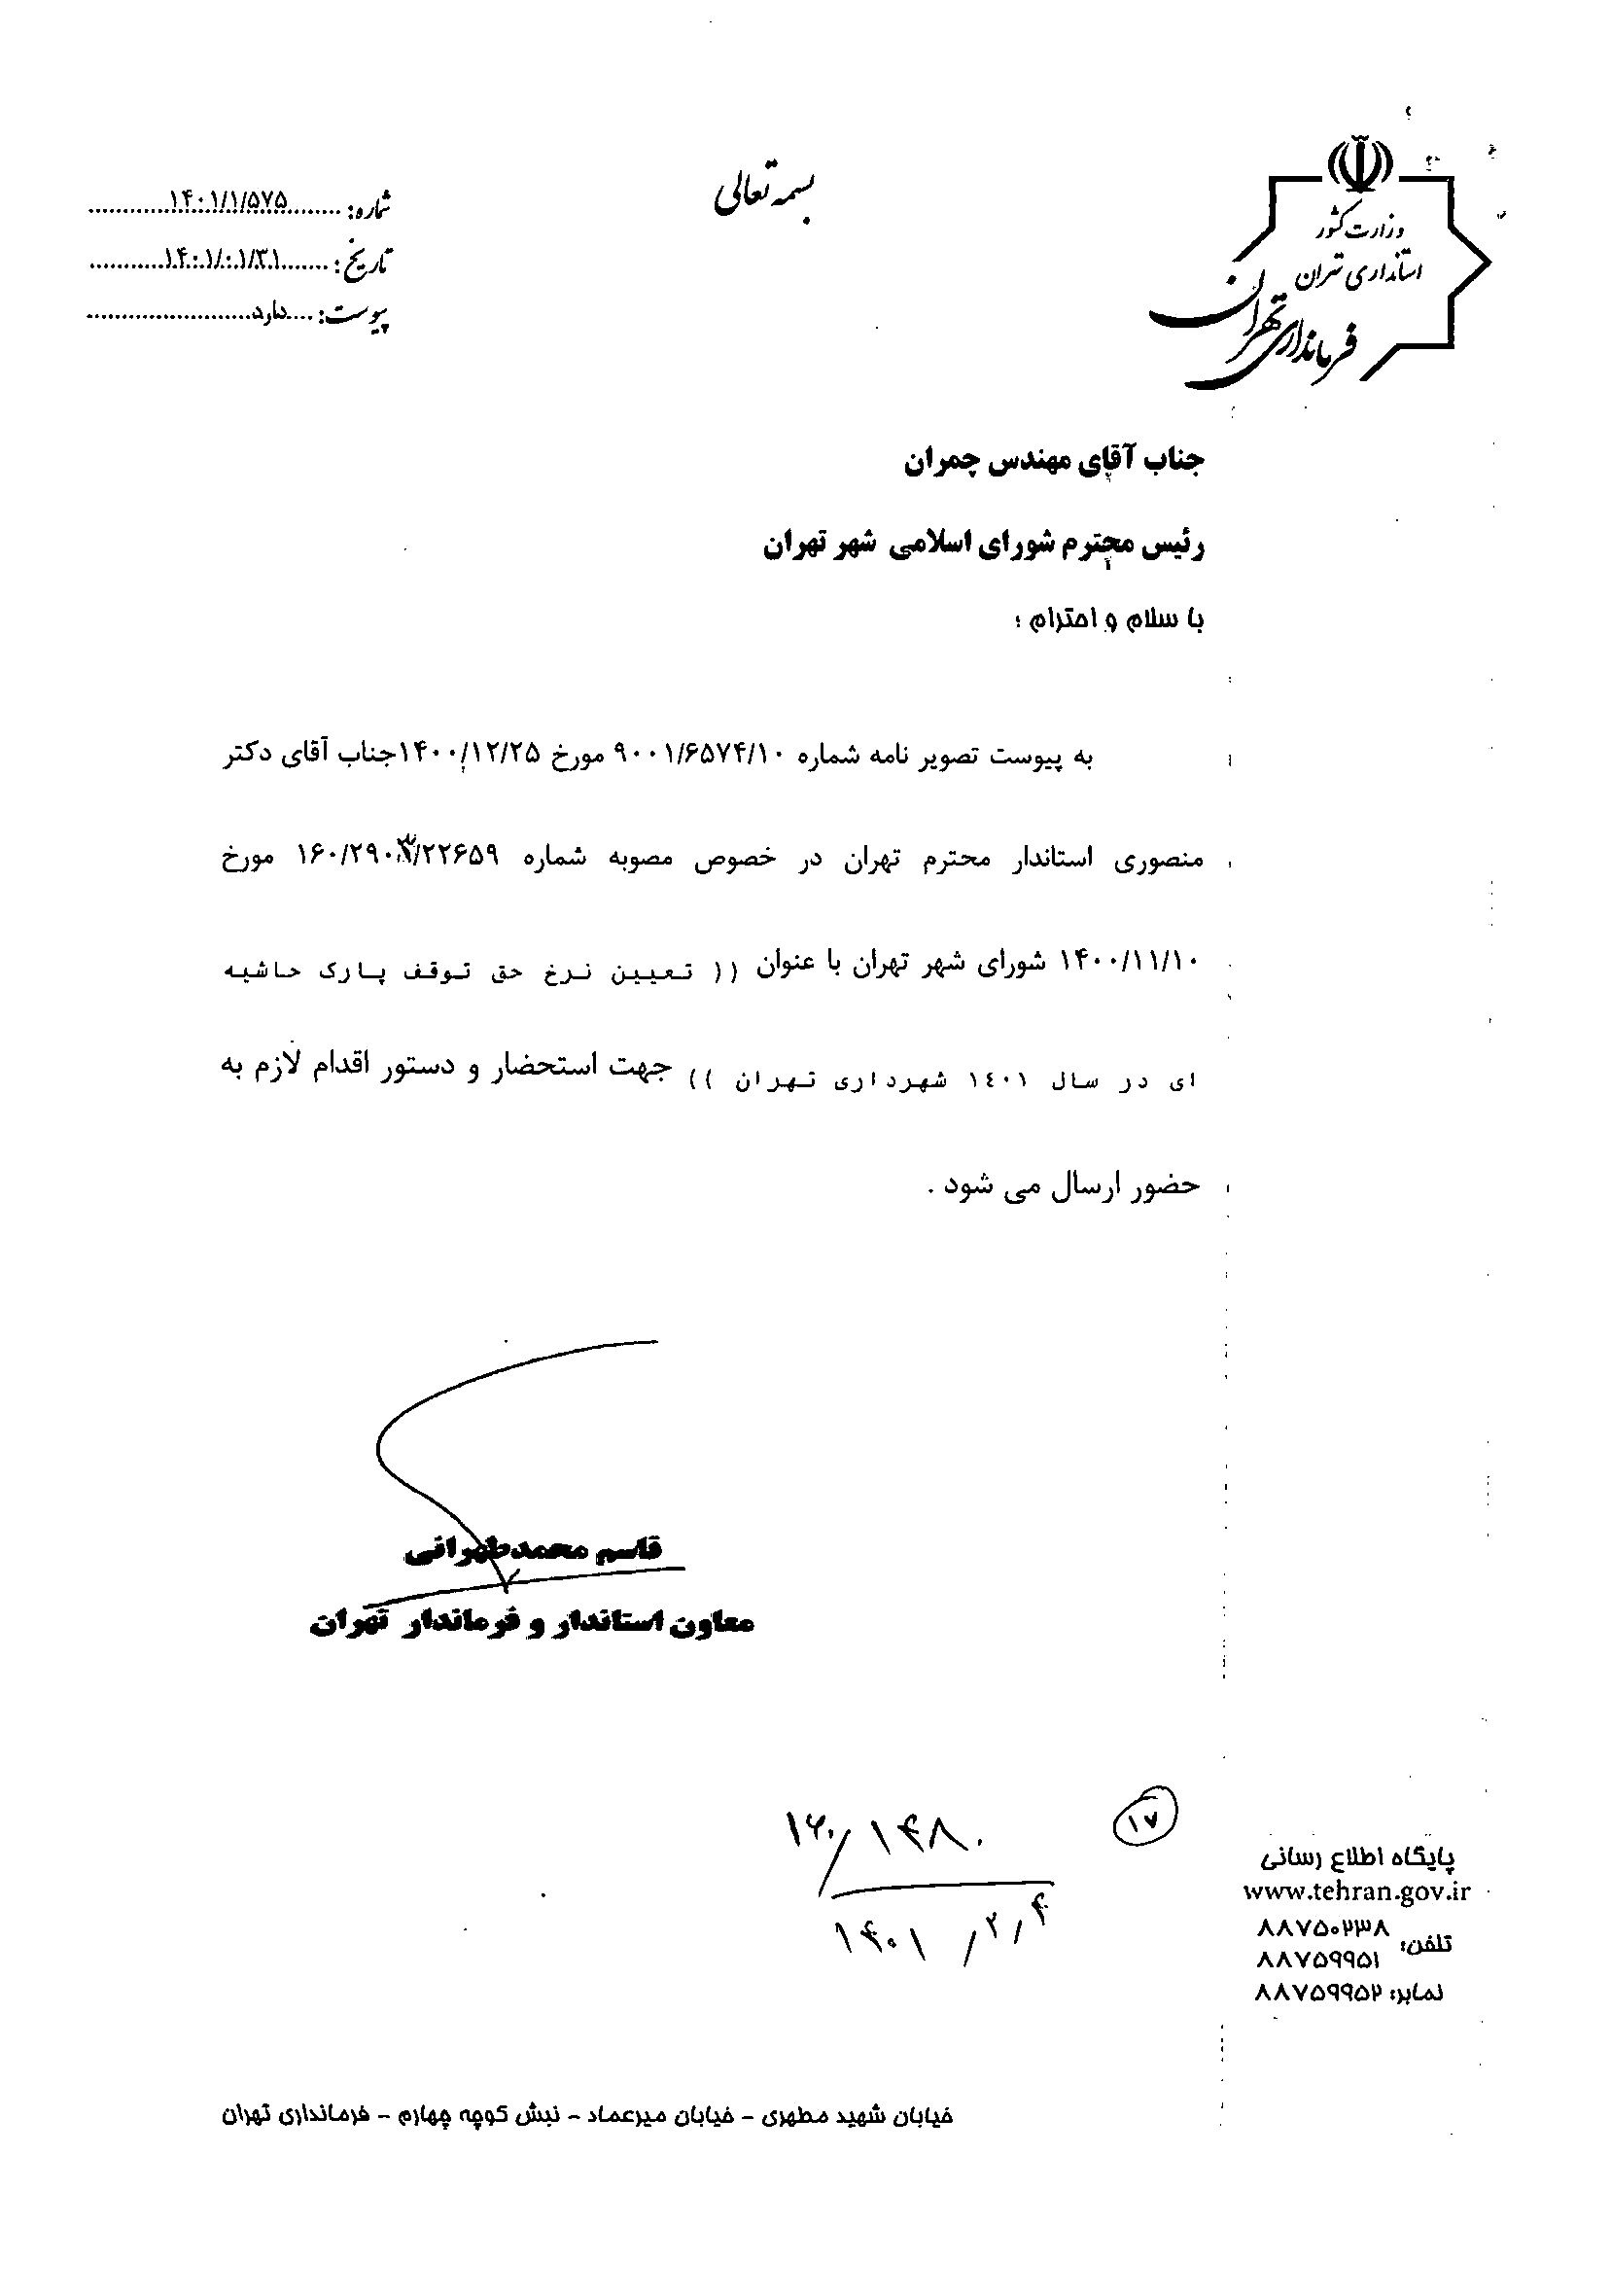 بسمه تعالی
وزارت کشور
استانداری تهران
فرمانداری تهران
شماره: ۱۴۰۱/۱/۵۷۵
تاریخ: ۱۴۰۱/۰۱/۳۱
پیوست: دارد
جناب آقای مهندس چمران
رئیس محترم شورای اسلامی شهر تهران
با سلام و احترام ؛
به پیوست تصویر نامه شماره ۹۰۰۱/۶۵۷۴/۱۰ مورخ ۱۴۰۰/۱۲/۲۵جناب آقای دکتر
منصوری استاندار محترم تهران در خصوص مصوبه شماره ۱۶۰/۲۹۰۳/۲۲۶۵۹ مورخ
۱۴۰۰/۱۱/۱۰ شورای شهر تهران با عنوان (( تعیین نرخ حق توقف پارک حاشیه
ای در سال ۱٤۰۱ شهرداری تهران )) جهت استحضار و دستور اقدام لازم به
حضور ارسال می شود .
قاسم محمدطهرانی
معاون استاندار و فرماندار تهران
۱۷
۱۶۰/۱۴۸۰
۱۴۰۱/۲/۴
پایگاه اطلاع رسانی
www.tehran.gov.ir
تلفن: ۸۸۷۵۰۲۳۸
۸۸۷۵۹۹۵۱
نمابر: ۸۸۷۵۹۹۵۲
خیابان شهید مطهری - خیابان میرعماد - نبش کوچه چهارم - فرمانداری تهران